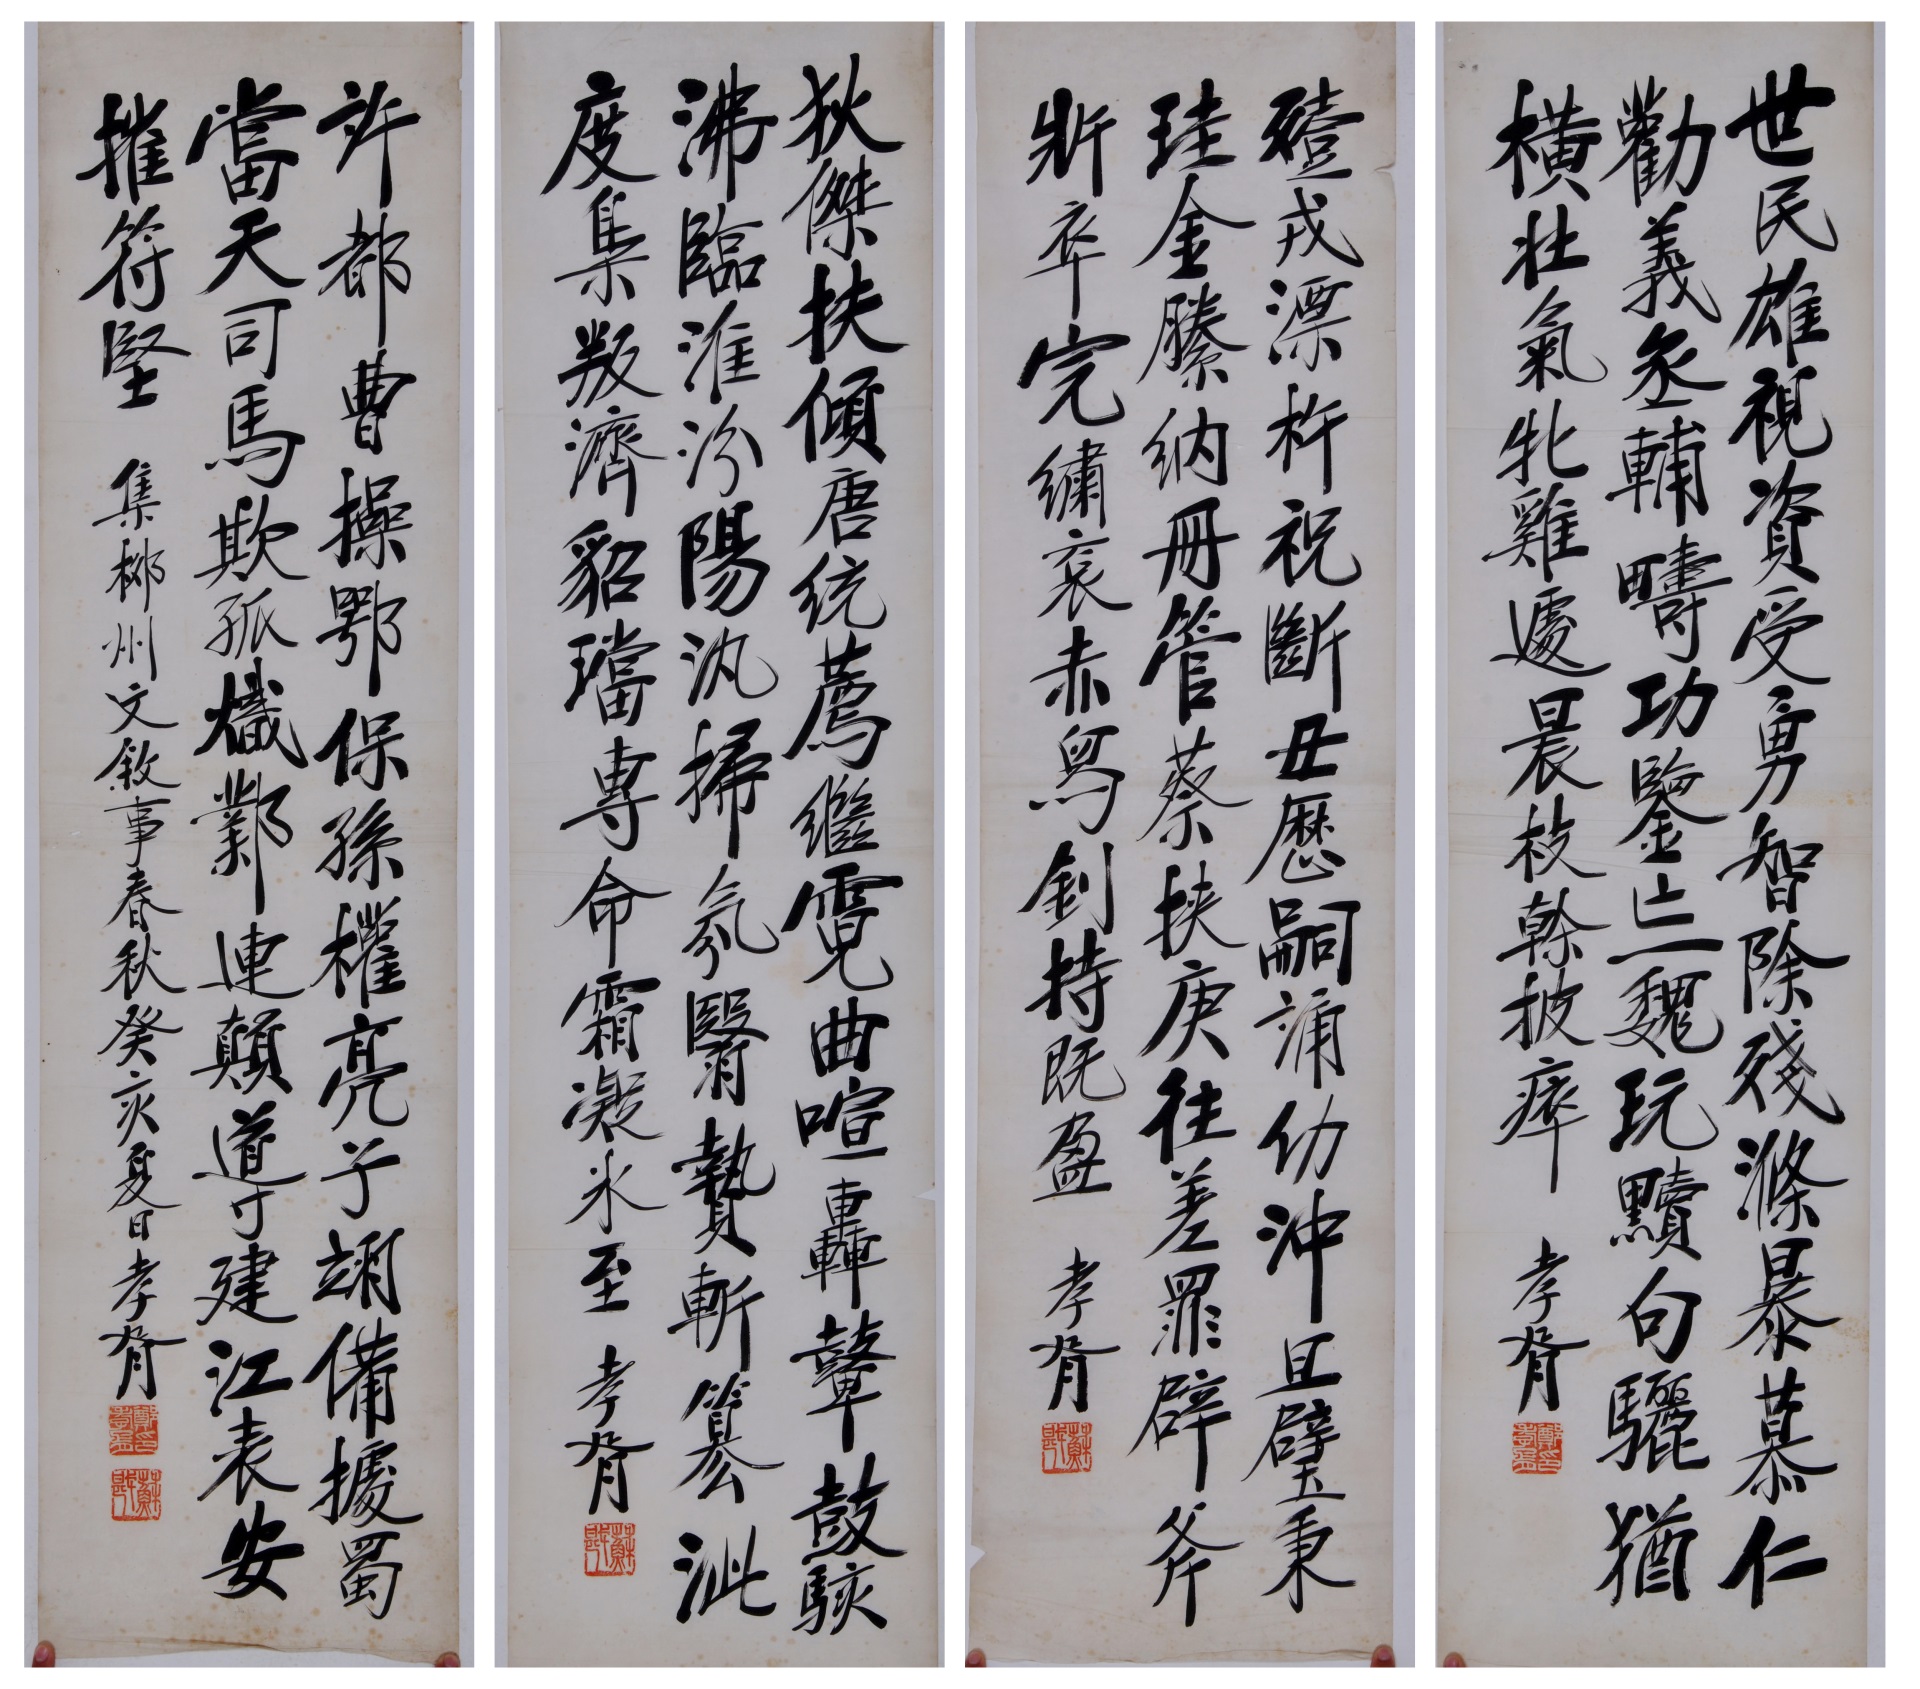 世民雄視資受勇智除殘滌暴慕仁
勸義丞輔疇功鑒亡魏玩黷句驪猶
橫壯氣牝雞遽晨枝幹披瘁 孝胥
殪戎漂杵祝斷丑歷嗣誦幼沖旦璧秉
珪金縢納冊管蔡挾庚往差罪辟斧
斨卒完繡袞赤舄釗持既盈 孝胥
蘇戡
狄傑扶傾唐統薦繼霓曲喧轟鼙鼓駭
沸臨淮汾陽汛掃氛翳贄斬篡泚
度集叛濟貂璫專命霜凝氷至 孝胥
蘇戡
許都曹操鄂保孫權亮予翊備據蜀
當天司馬欺孤熾鄴連顛導建江表安
摧符堅 集郴州文敘事春秋癸亥夏日孝胥
蘇戡